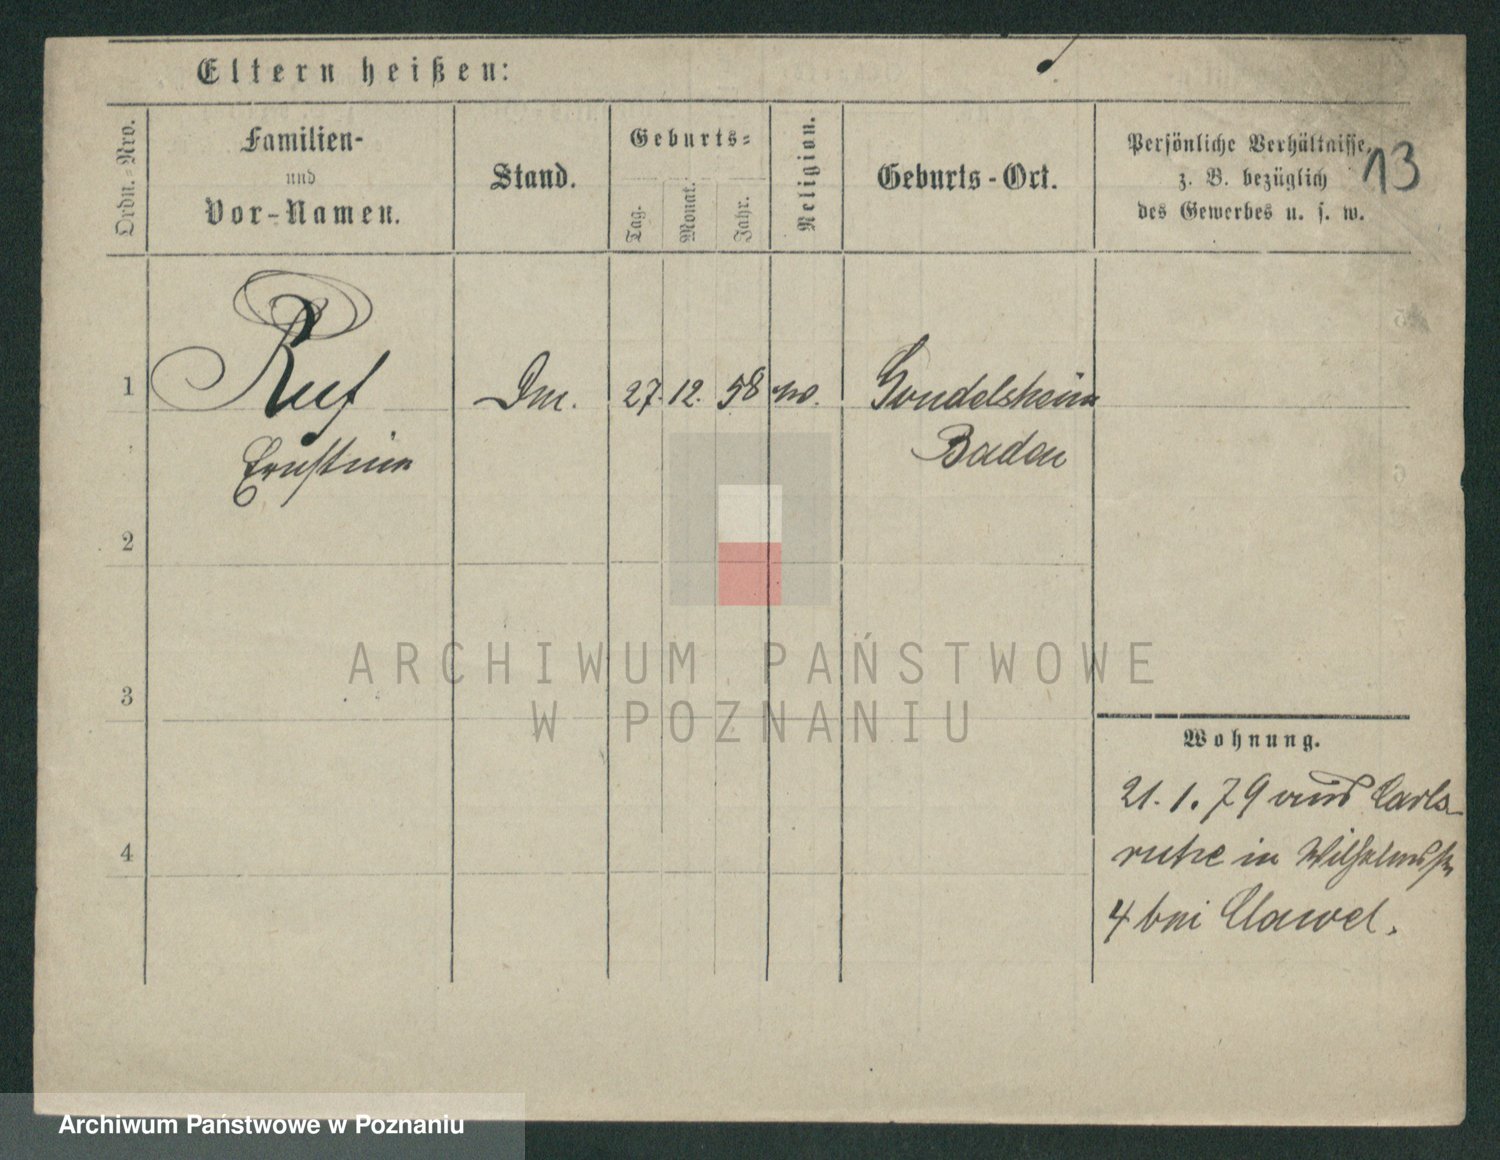 Eltern heißen:
Ordn.-Nro.
Familien-
und
Vor-Namen.
Stand.
Geburts-
Tag.
Monat.
Jahr.
Religion.
Geburts-Ort.
Persönliche Verhältnisse,
z. B. bezüglich
des Gewerbes u. s. w.
13
1
Ruf
27. 12. 58
Gondelsheim
Ernstine
Baden
2
3
4
ARCHIWUM PAŃSTWOWE
W POZNANIU
Wohnung.
21. 1. 79 aus Carls-
ruhe in Wilhelmsstr
4 bei Clawel.
Archiwum Państwowe w Poznaniu